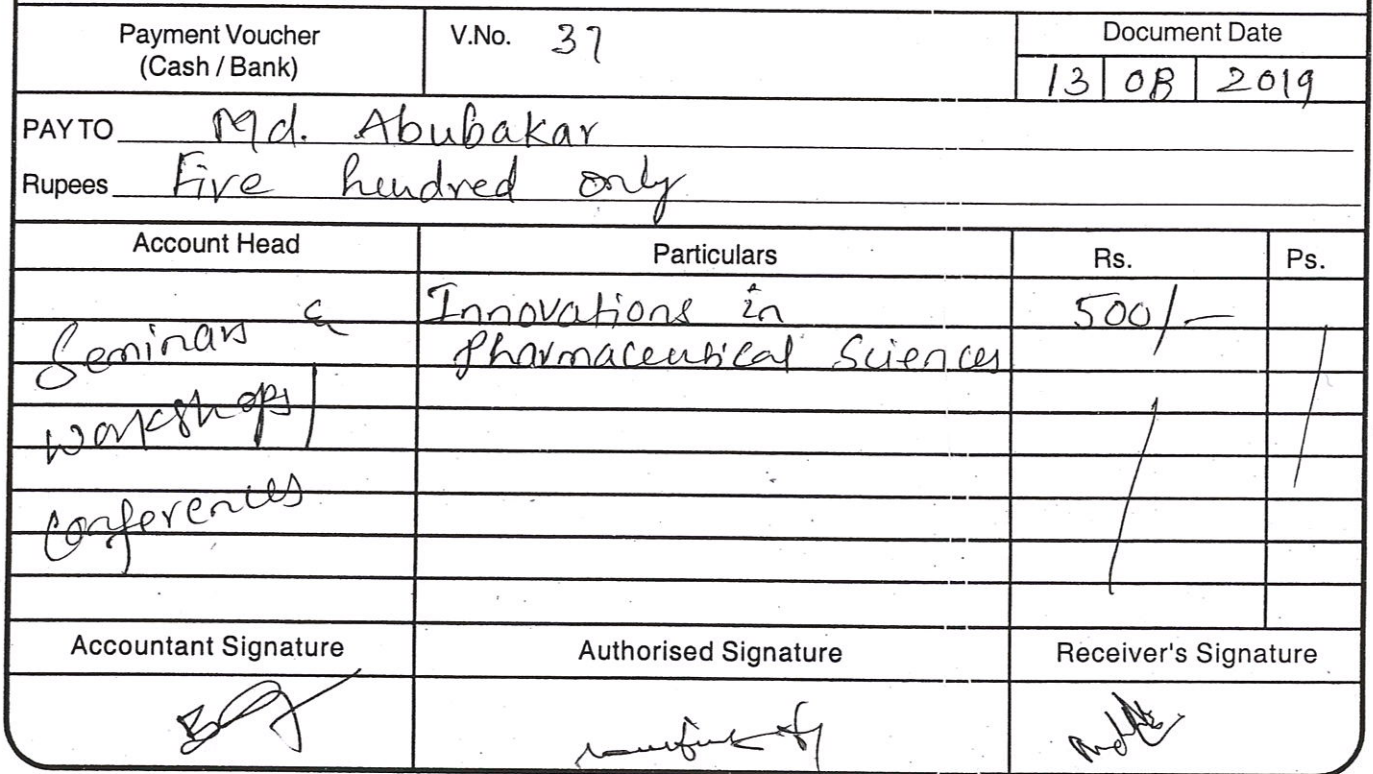 Payment Voucher
(Cash / Bank)
V.No. 37
Document Date
13 08 2019
PAY TO Md. Abubakar
Rupees Five hundred only
Account Head Particulars Rs. Ps.
Seminars &
workshops/
conferences
Innovations in
Pharmaceutical Sciences
500/-
Accountant Signature Authorised Signature Receiver's Signature